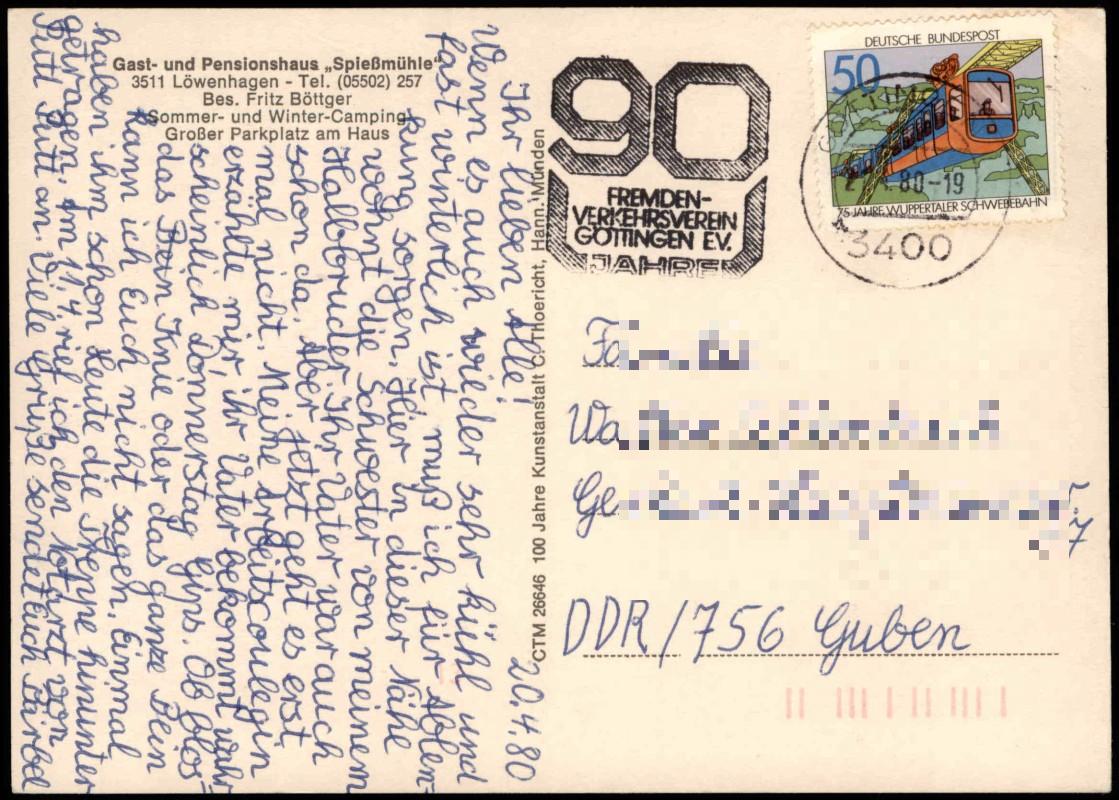 Gast- und Pensionshaus „Spießmühle"
3511 Löwenhagen - Tel. (05502) 257
Bes. Fritz Böttger
Sommer- und Winter-Camping
Großer Parkplatz am Haus
20.4.80
Ihr lieben Alle!
Wenn es auch wieder sehr kühl und
fast winterlich ist, muß ich für Ablen-
kung sorgen. Hier in dieser Nähe
wohnt die Schwester von meinem
Halbbruder. Ihr Vater war auch
schon da. Aber jetzt geht es erst
mal nicht. Meine Arbeitskollegin
erzälte mir, ihr Vater bekommt wahr-
scheinlich Donnerstag eins. Ob blos
das Bein Knie oder das ganze Bein
kann ich Euch nicht sagen. Einmal
haben ihm schon Leute die Treppe hinunter
getragen. Am 11.4. rief ich den Notarzt von
Putl Putl an. Viele Grüße sendet euch Bärbel
CTM 26646 100 Jahre Kunstanstalt C. Thoericht, Hann. Münden
90
FREMDEN-
VERKEHRSVEREIN
GÖTTINGEN E.V.
JAHRE
DEUTSCHE BUNDESPOST
50
75 JAHRE WUPPERTALER SCHWEBEBAHN
80-19
3400
DDR/756 Guben